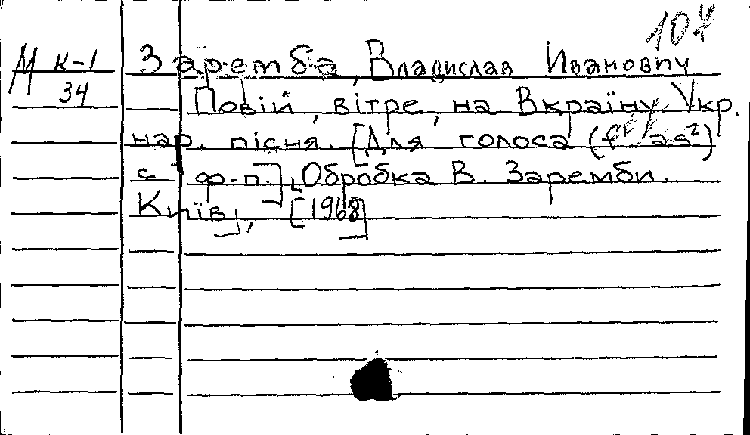 107
М К-1 Заремба, Владислав Иванович
34 Повій, вітре, на Вкраїну. Укр.
нар. пісня. [Для голоса
с ф-п.], Обробка В. Заремби.
Київ], [1968]